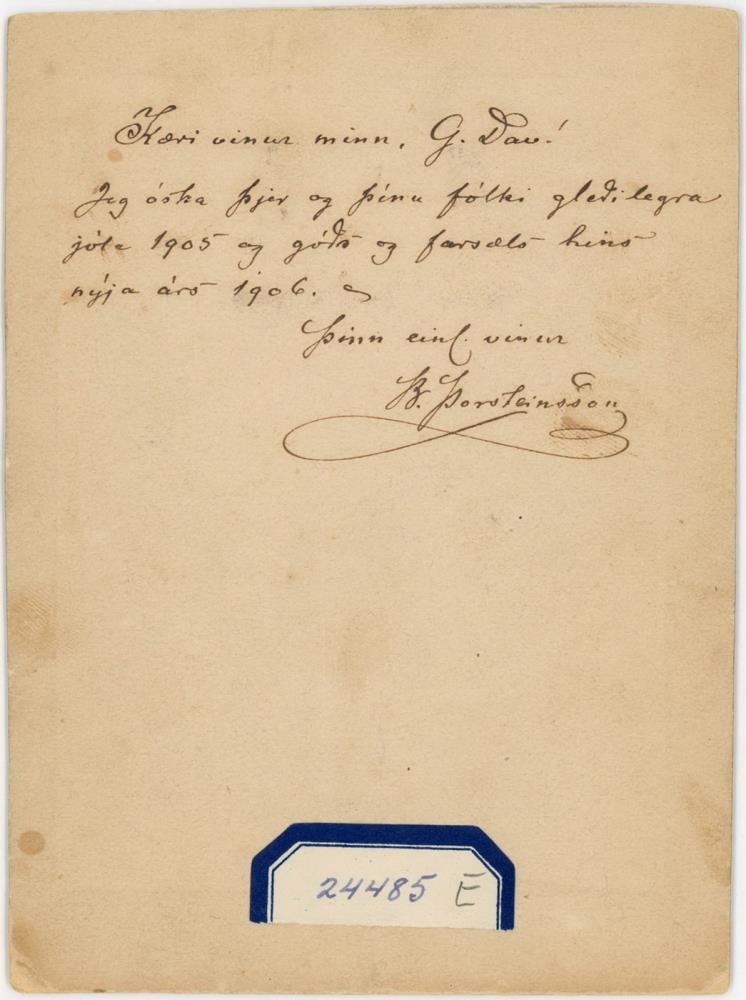 Kæri vinur minn, G. Dav!
Jeg óska þjer og þínu fólki gleðilegra
jóla 1905 og góðs og farsæls hins
nýja árs 1906.
Þinn einl. vinur
B. Þorsteinsson
24485 E